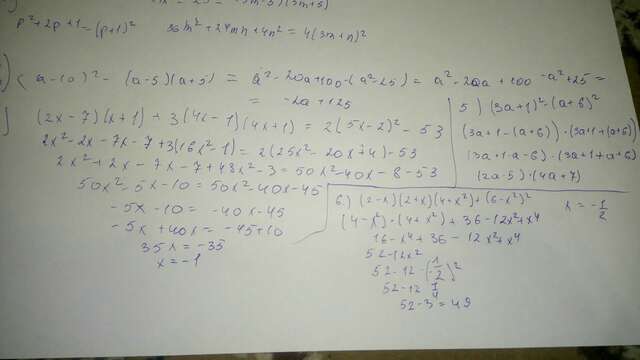 p²+2p+1=(p+1)² 36m²+24mn+4n²=4(3m+n)²
(a-10)² - (a-5)(a+5) = a²-20a+100-(a²-25) = a²-20a+100-a²+25 =
= -20a+125
(2x-7)(x+1)+3(4x-1)(4x+1) = 2(5x-2)² - 53
2x²-2x-7x-7+3(16x²-1)=2(25x²-20x+4)-53
2x²+2x-7x-7+48x²-3=50x²-40x-8-53
50x²-5x-10=50x²-40x-45
-5x-10= -40x-45
-5x+40x= -45+10
35x=-35
x=-1
5) (3a+1)²-(a+6)²
(3a+1-(a+6))·(3a+1+(a+6))
(3a+1-a-6)·(3a+1+a+6)
(2a-5)·(4a+7)
6.) (2-x)(2+x)(4+x²)+(6-x²)² x=-1/2
(4-x²)·(4+x²)+36-12x²+x⁴
16-x⁴+36-12x²+x⁴
52-12x²
52-12·(-1/2)²
52-12·1/4
52-3=49